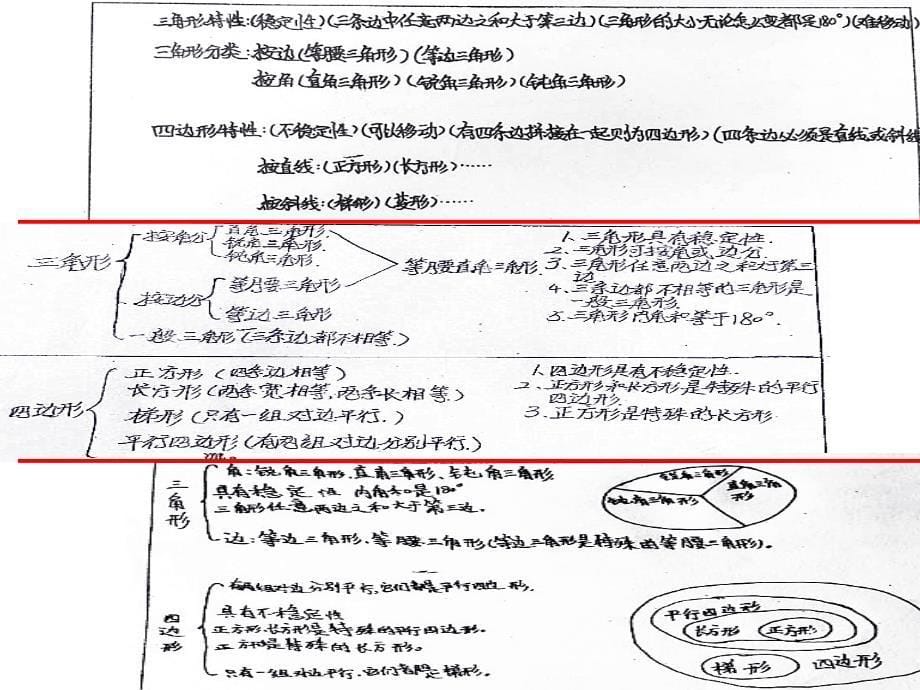 三角形特性:(稳定性)(三条边中任意两边之和大于第三边)(三角形的大小无论怎么变都是180°)(难移动)
三角形分类:按边(等腰三角形)(等边三角形)
按角(直角三角形)(锐角三角形)(钝角三角形)
四边形特性:(不稳定性)(可以移动)(有四条边拼接在一起则为四边形)(四条边必须是直线或斜线
按直线:(正方形)(长方形)……
按斜线:(梯形)(菱形)……
三角形
按角分
直角三角形.
锐角三角形.
钝角三角形.
按边分
等腰三角形
等边三角形
等腰直角三角形.
一般三角形(三条边都不相等.)
1.三角形具有稳定性.
2.三角形可按角或边分.
3.三角形任意两边之和大于第三
边
4.三条边都不相等的三角形是
一般三角形.
5.三角形内角和等于180°.
四边形
正方形(四条边相等)
长方形(两条宽相等,两条长相等)
梯形(只有一组对边平行.)
平行四边形(有两组对边分别平行.)
1.四边形具有不稳定性.
2.正方形和长方形是特殊的平行
四边形.
3.正方形是特殊的长方形
三角形
角:锐角三角形、直角三角形、钝角三角形
具有稳定性 内角和是180°
三角形任意两边之和大于第三边.
边:等边三角形、等腰三角形(等边三角形是特殊的等腰三角形)。
锐角三角形
直角三角形
钝角三角形
四边形
有两组对边分别平行,它们都是平行四边形.
具有不稳定性
正方形、长方形是特殊的平行四边形。
正方形是特殊的长方形。
只有一组对边平行,它们都是梯形。
平行四边形
长方形
正方形
梯形
四边形